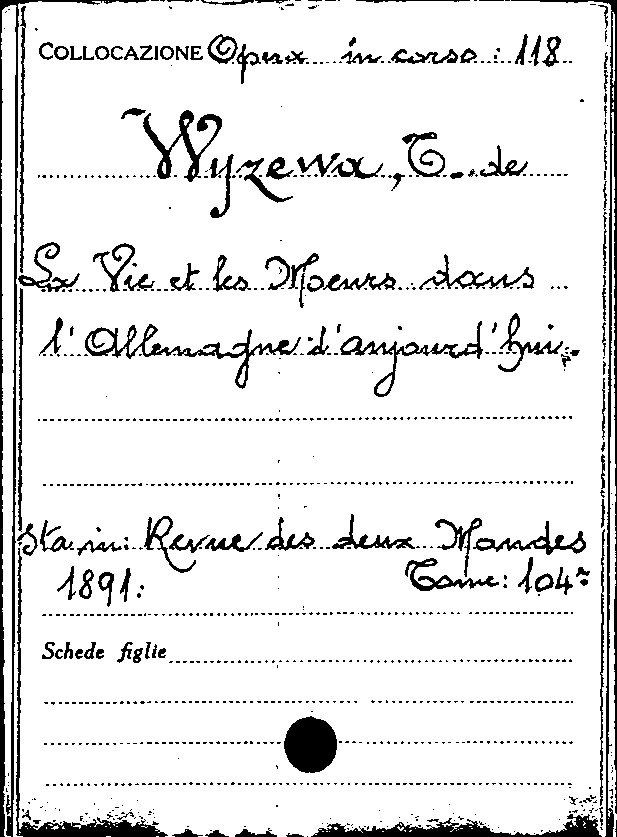 COLLOCAZIONE Opera in corso : 118
Wyzewa, T. de
La Vie et les Moeurs dans
l'Allemagne d'aujourd'hui.
Sta in: Revue des deux Mondes
1891: Tome: 104º
Schede figlie